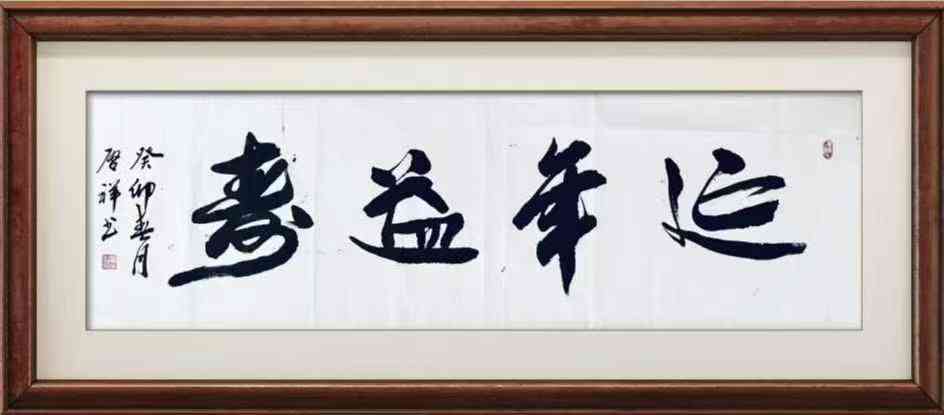 延年益寿
癸卯春月
启祥书